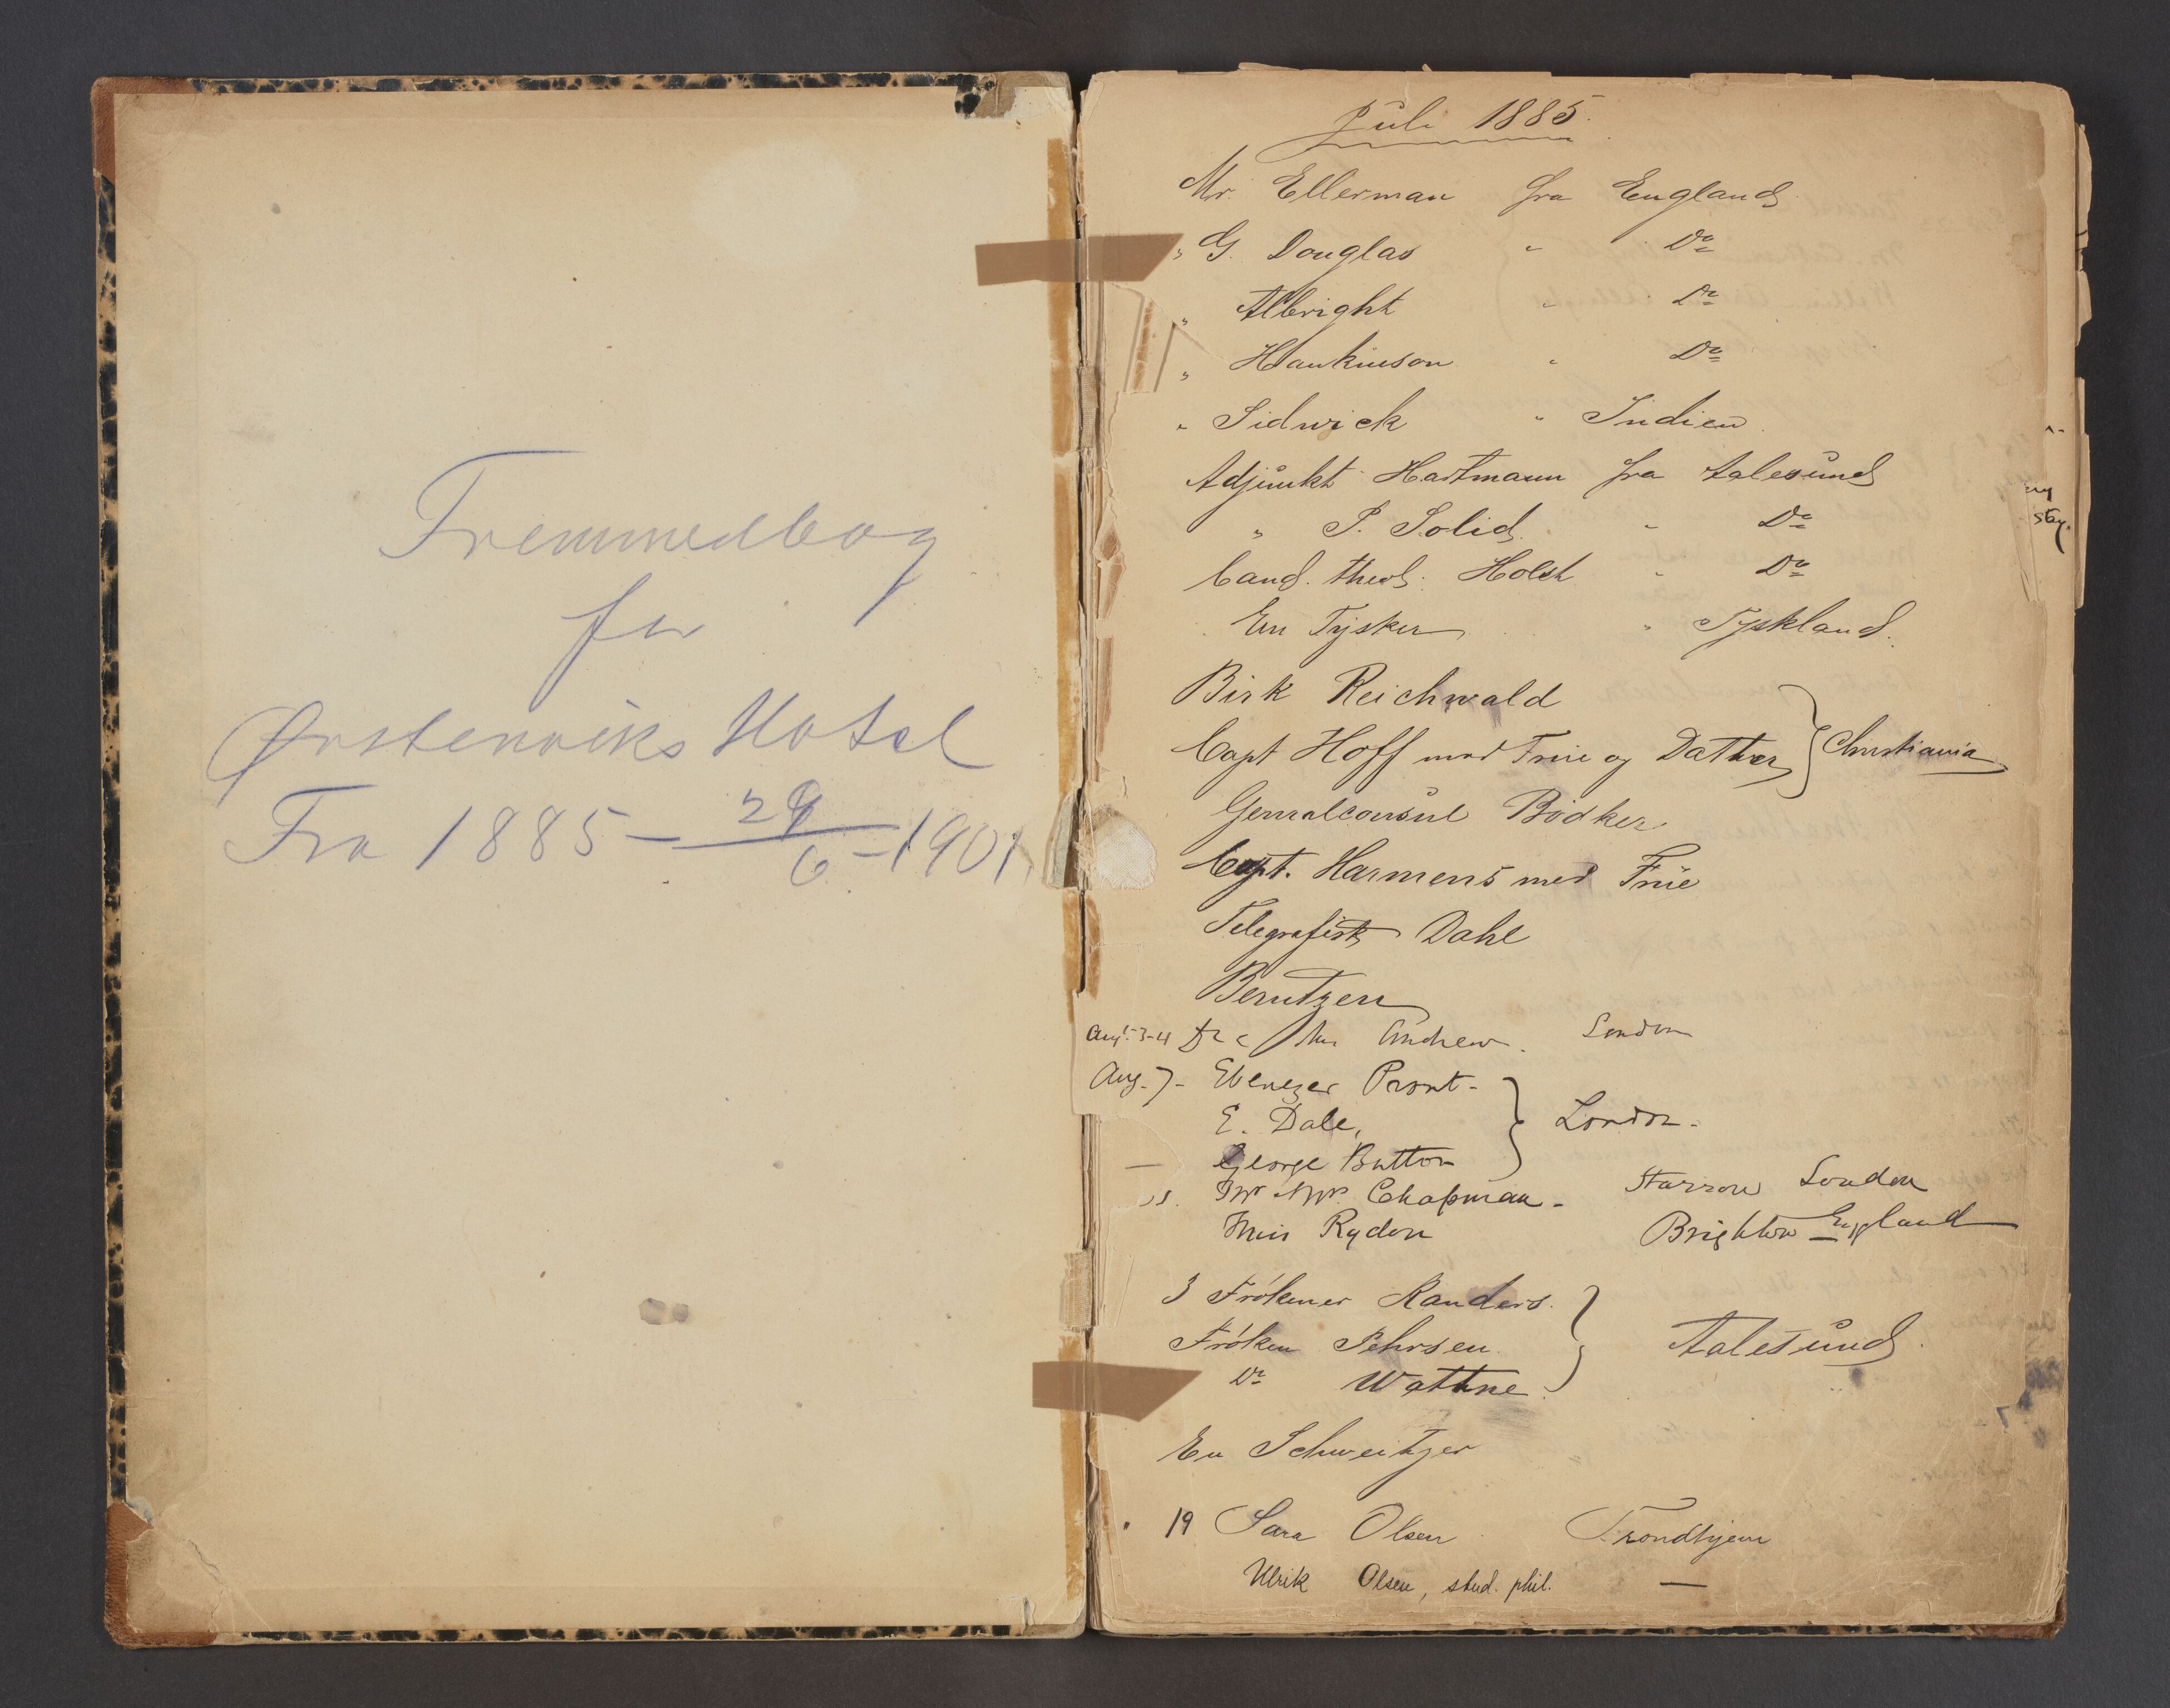 Fremmedbog
for
Ørstenviks Hotel
Fra 1885 - 29/6 - 1901
Juli 1885.
Mr. Ellerman fra England
" G. Douglas " Do
" Albright " Do
" Hankinson " Do
" Sidwick " Indien
Adjunkt Hartmann fra Aalesund
" P. Solid " Do
Cand. theol. Holst " Do
En Tysker " Tyskland.
Birk Reichwald
Capt Hoff med Frue og Datter } Christiania
Generalconsul Bödker
Capt. Harmens med Frue
Telegrafist Dahl
Berntzen
Aug. 3-4 Andrew. London
Aug. 7- Ebenezer Prout -
E. Dale, } London -
— George Button
Mr & Mrs Chapman - Harrow London
Miss Rydon Brighton England
3 Frókener Randers.
Fróken Pehrsen } Aalesund.
Do Wattne.
En Schweitzer
" 19 Sara Olsen Trondhjem
Ulrik Olsen, stud. phil. —